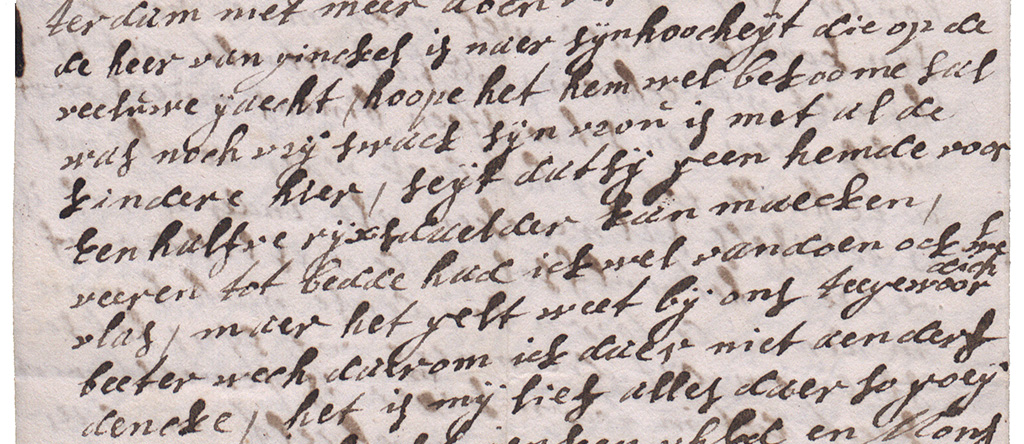 terdam niet meer doen
de heer van ginckel is naer sijn hoocheijt die op de
veeluwe jaecht, hoope het hem wel bekoome sal
was noch vrij swack sijn vrou is met al de
kindere hier, seijt dat sij geen hemde voor
een halfve rijxsdaelder kan maecken,
veeren tot bedde had ick wel van doen ock
vlas, maer het gelt weet bij ons teegewoordich
beeter wech daerom ick daer niet aenders
dencke, het is mij lief alles daer so goeij
en Mons